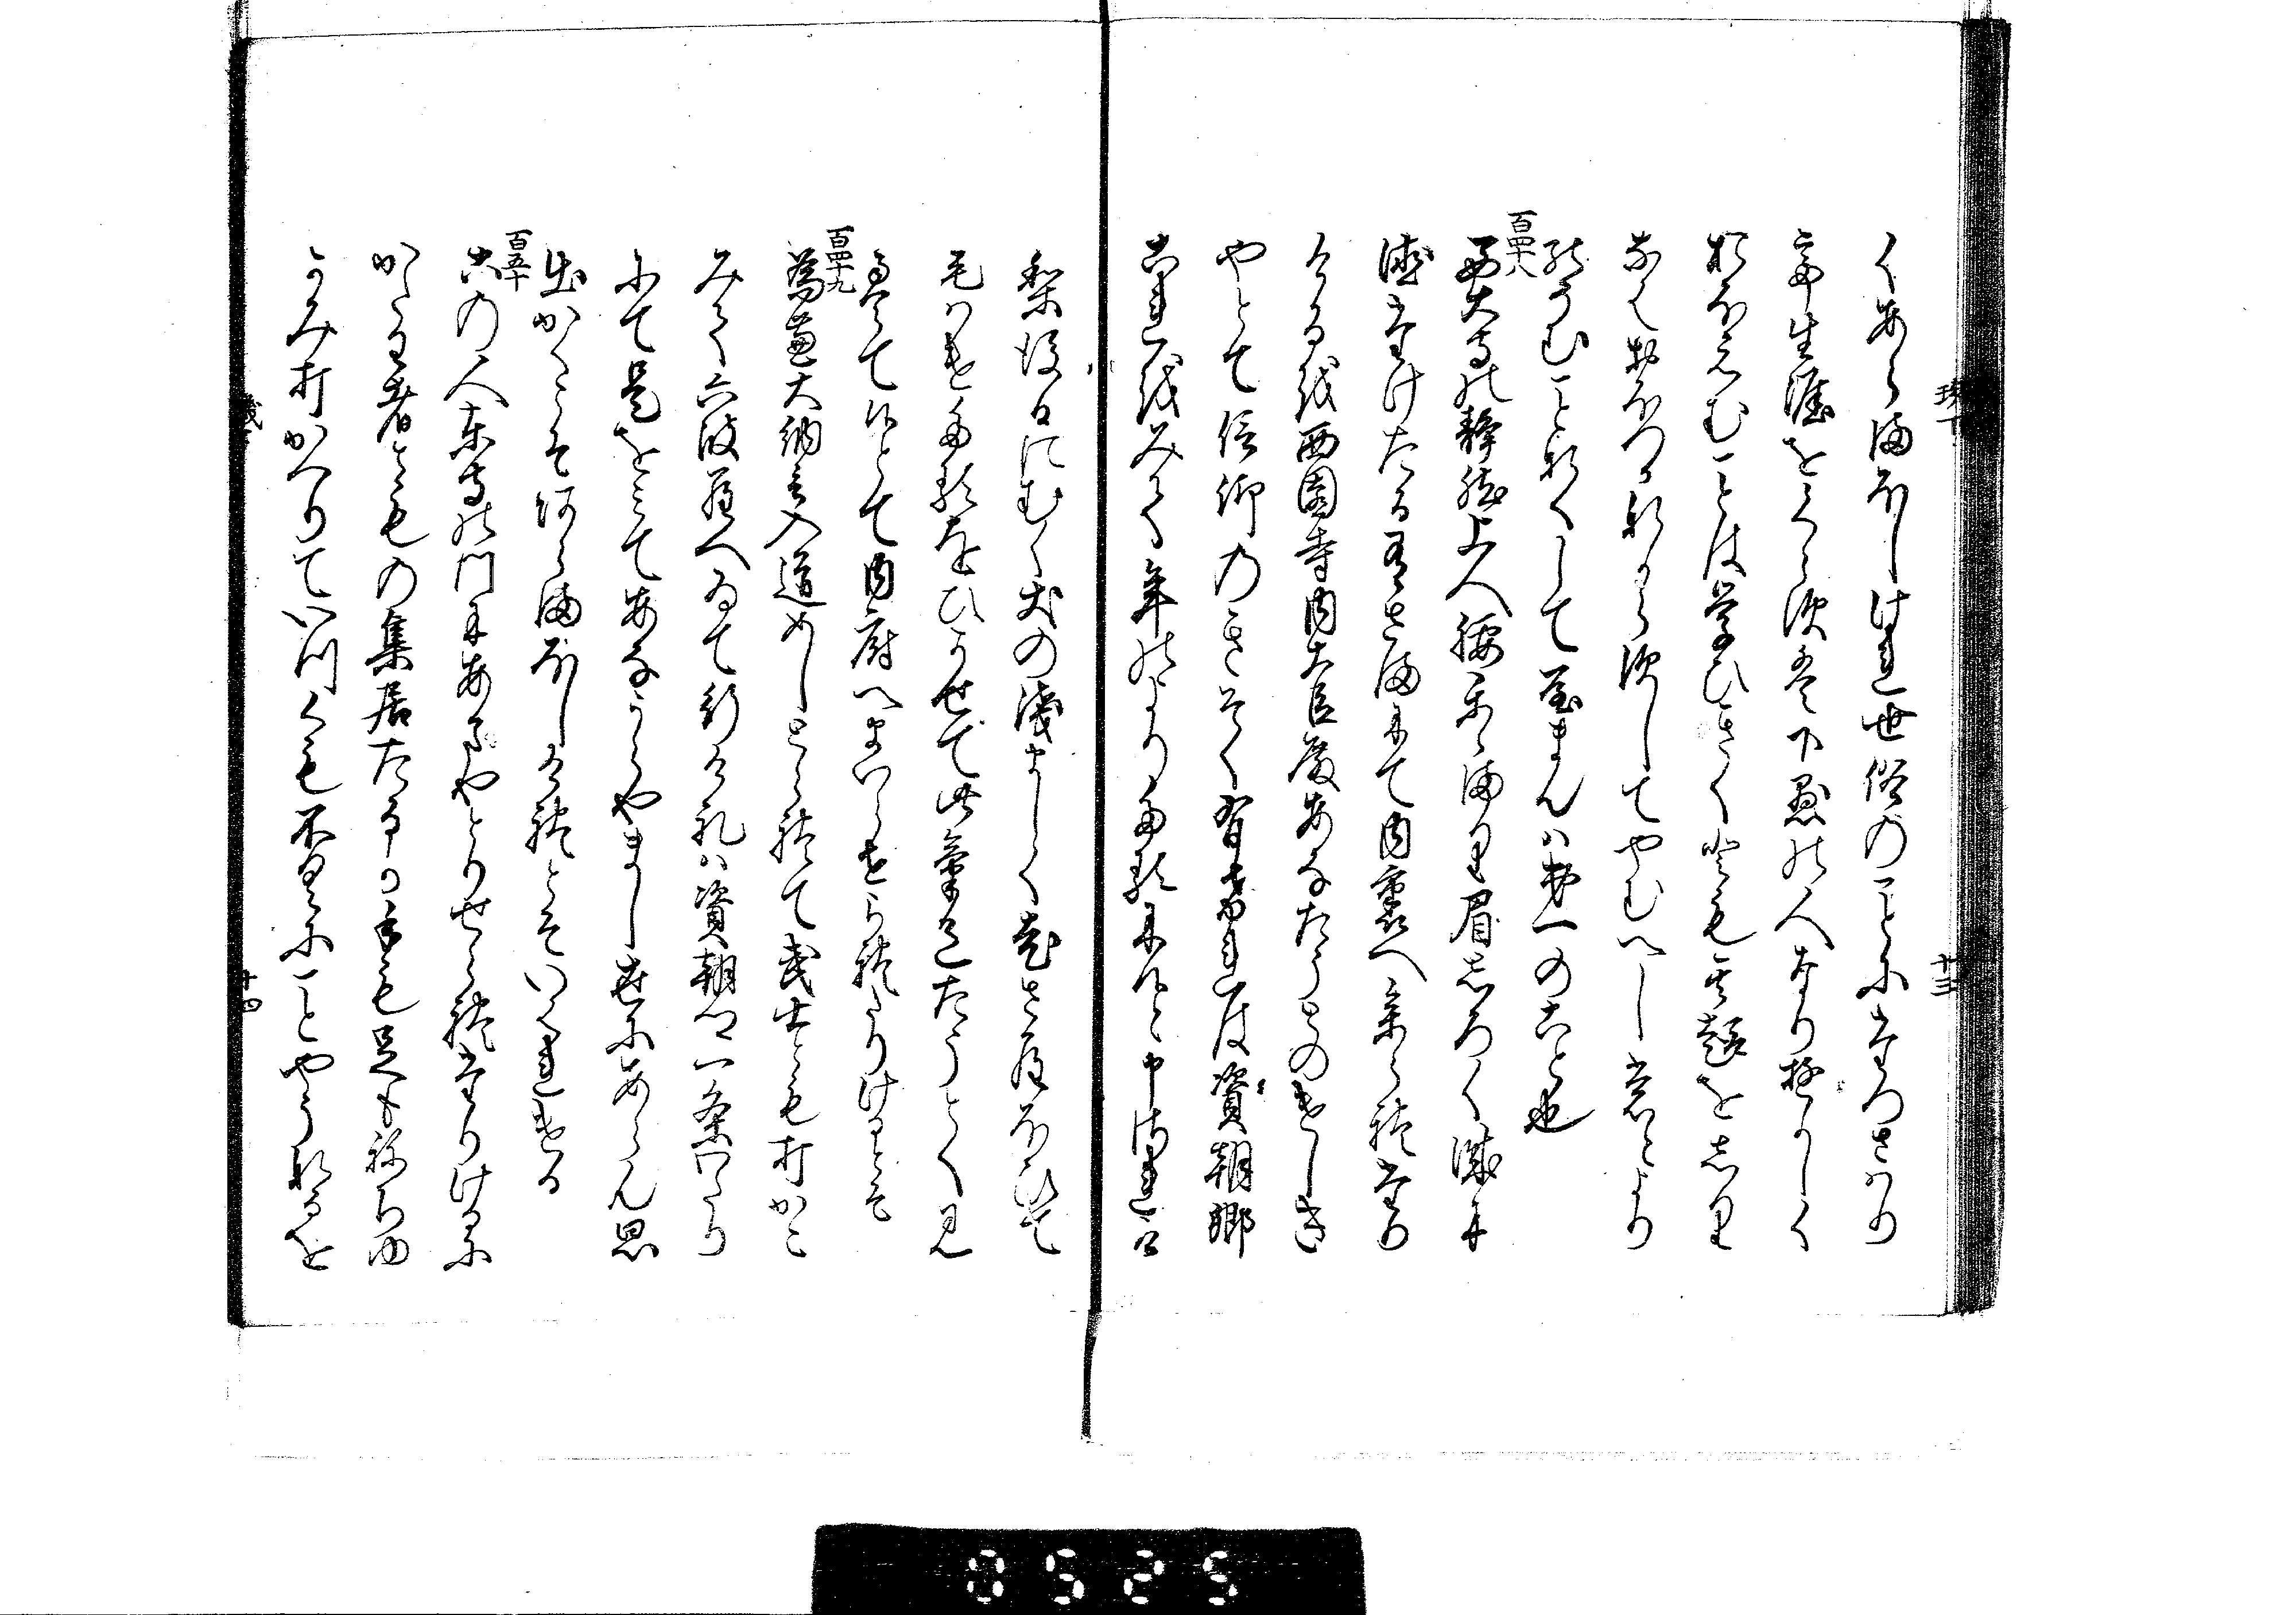 くあらまほしけれ世俗のことにたつさはり
て生涯をくらすは下愚の人なりゆかしく
おほえむことは学ひきくともその趣をしり
なはおほつかなからすしてやむへしもとより
のそむことなくしてやまんは第一のこと也
百四十八
西大寺の静然上人腰かゝまり眉しろく誠に
徳たけたるありさまにて内裏へ参られたり
けるを西園寺内大臣殿あなたうとのけしき
やとて信仰のきそく有けれは資朝卿
これをみて年のよりたるに候と申されけ
り後日にむく犬の浅ましく老さらほひて
毛はけたるをひかせて此気色たうとく見
えて候とて内府へまいらせられたりけるとそ
百四十九
為兼大納言入道めしとられて武士とも打かこ
みて六波羅へゐて行けれは資朝卿一条わたり
にて是をみてあなうらやまし世にあらん思
出かくこそあらまほしけれとそいはれける
百五十
此の人東寺の門にあまやとりせられたりけるに
かたは者ともの集居たるか手も足もねちゆ
かみ打かへりていつくも不具にことやうなるを
十三
十四
0525